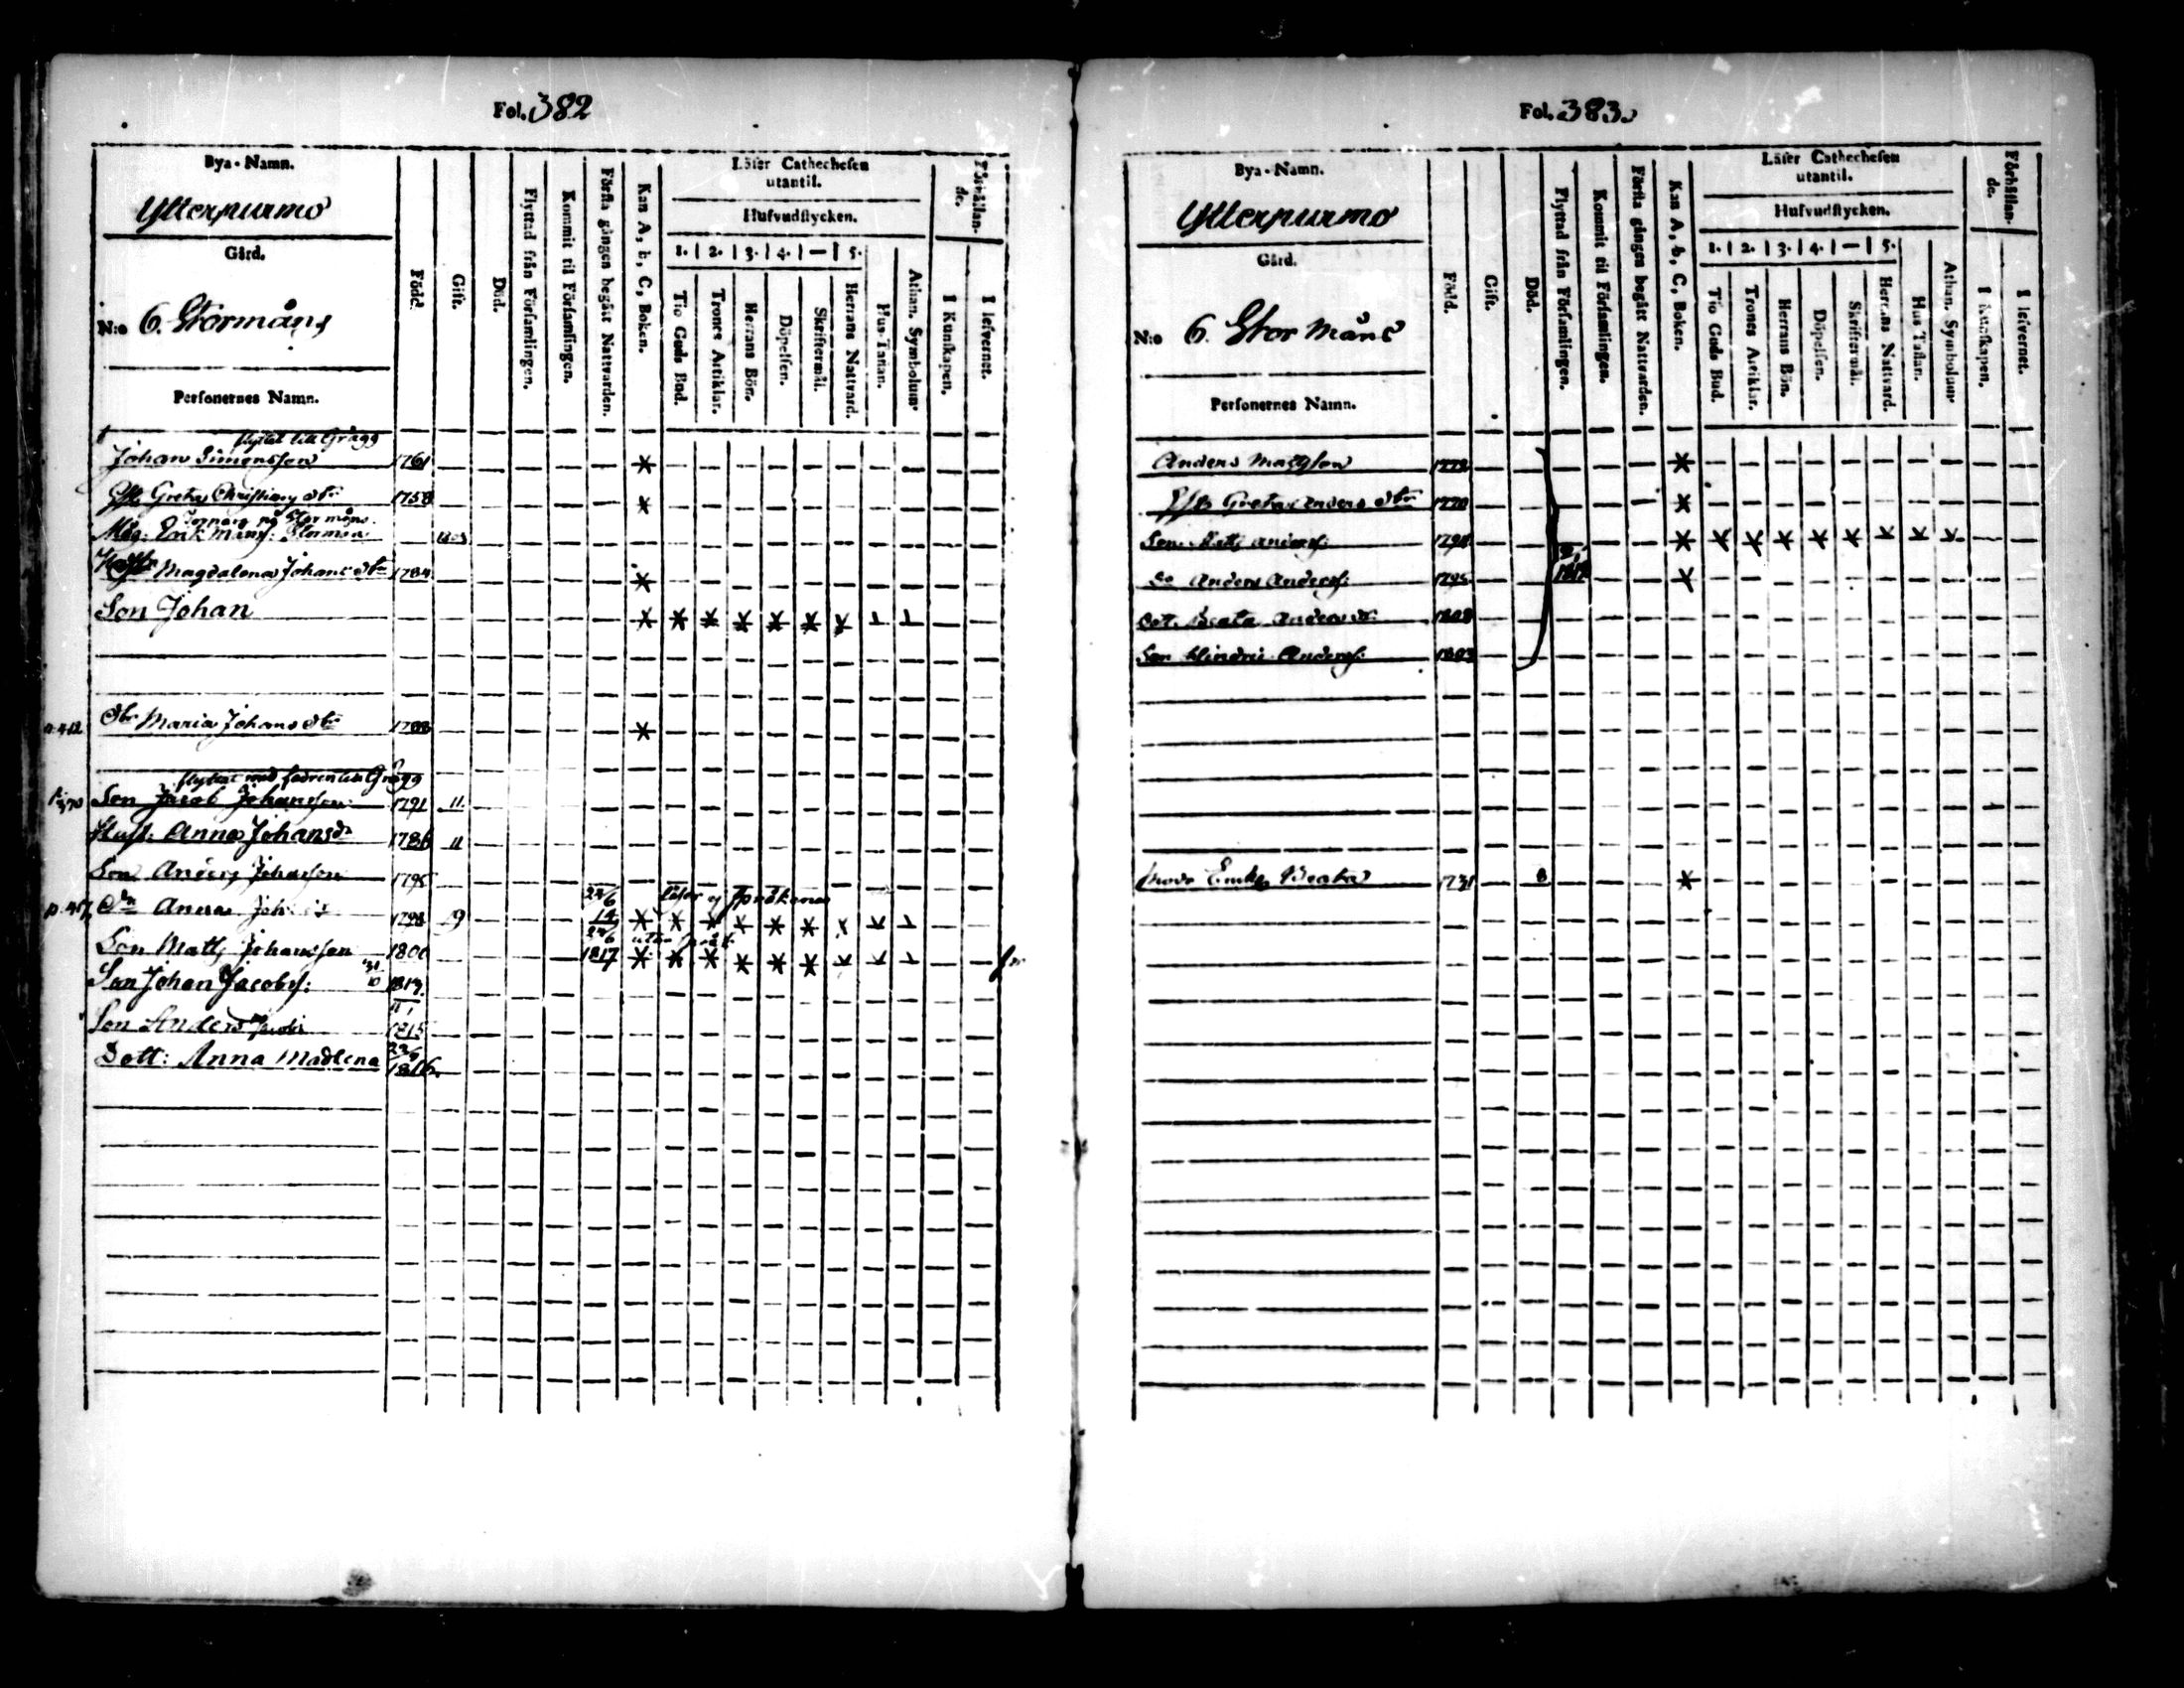 Fol. 382
Bya-Namn.
Ytterpurmo
Gård.
N:o 6. Stormåns
Personernes Namn.
Född.
Gift.
Död.
Flyttad från Församlingen.
Kommit til Församlingen.
Första gången begått Nattvarden.
Kan A, b, C, Boken.
Läser Cathechesen
utantil.
Hufvudstycken.
1. 2. 3. 4. — 5.
Tio Guds Bud.
Trones Artiklar.
Herrans Bön.
Döpelsen.
Skriftermål.
Herrans Nattvard.
Hus-Taflan.
Athan. Symbolum.
Förhållan-
de.
I Kunskapen.
I lefvernet.
flyttat till Grägg
Johan Simonsson 1761
Greta Christians dtr 1758
Måg: Erik Månss: Storman
Magdalena Johans dtr 1784
Son Johan
p. 412 dtr Maria Johans dtr 1788
flyttat med fadren till Grägg
Son Jacob Johansson 1791 11
Hust: Anna Johansdr 1786 11
Son Anders Johansson 1795
24/6
Anna 1798 19
24/6
Son Matts Johansson 1800 1817
Son Johan Jacobss: 31/10 1813.
Son Anders 1815
Dott: Anna Madlena 1816.
Fol. 383.
Bya-Namn.
Ytterpurmo
Gård.
N:o 6. Stor Måns
Personernes Namn.
Född.
Gift.
Död.
Flyttad från Församlingen.
Kommit til Församlingen.
Första gången begått Nattvarden.
Kan A, b, C, Boken.
Läser Cathechesen
utantil.
Hufvudstycken.
1. 2. 3. 4. — 5.
Tio Guds Bud.
Trones Artiklar.
Herrans Bön.
Döpelsen.
Skriftermål.
Herrans Nattvard.
Hus Taflan.
Athan. Symbolum.
Förhållan-
de.
I Kunskapen.
I lefvernet.
Anders Mattsson 1772
Greta Anders dtr 1770
Son Matts Anderss:
Do Anders Anderss: 1795
Dott. Beata Anders dr
Son Hindric Anderss: 1803
Enka Beata 1731 8